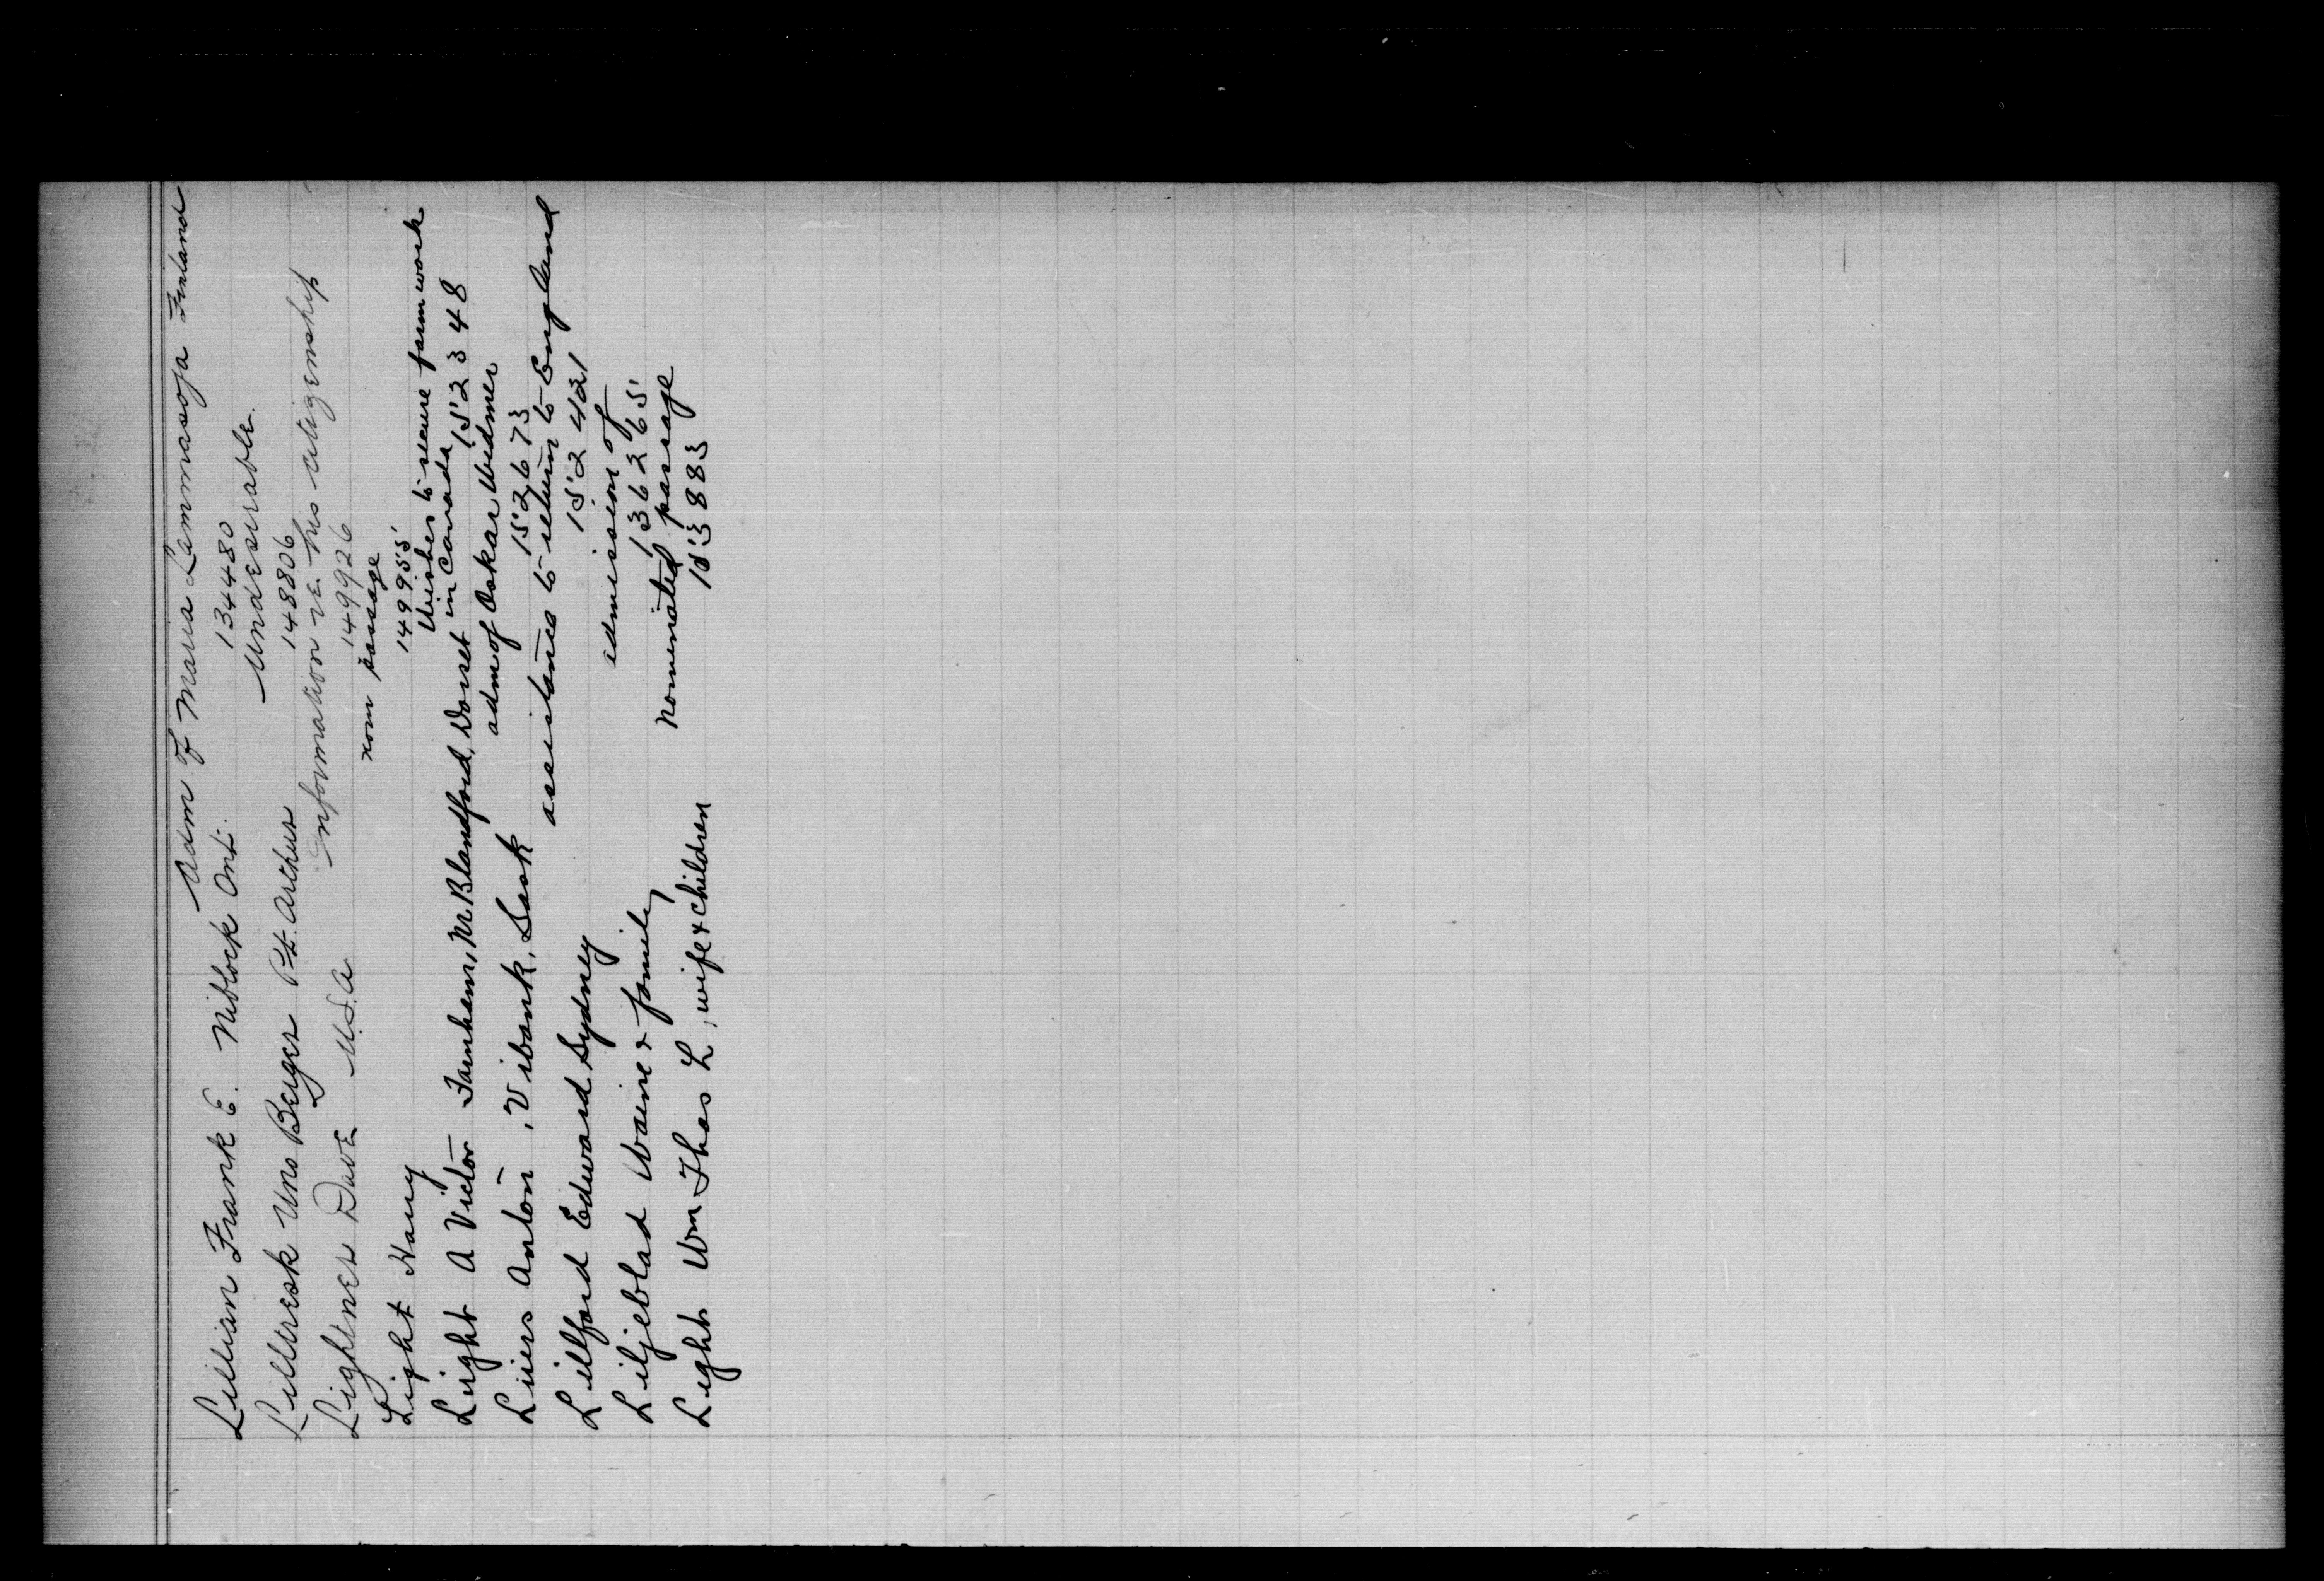 Adm of Maria Lammasoja Finland
Lillian Frank E. Niblock Ont. 134480
Undesirable
Lilltresk Uno Berger Pt. Arthur 148806
Information re his citizenship
Lightner Dave U.S.A 149926
nom passage
Light Harry 149955
Wishes to secure farm work
Light A Victor Farnham, Nr Blandford, Dorset in Canada 152348
adm of Oskar Widmer
Liiers Anton, Vibank, Sask 152673
assistance to return to England
Lillford Edward Sydney 152421
admission of
Liljeblad Waine & family 136265
nominated passage
Light Wm Thos L, wife & children 153883